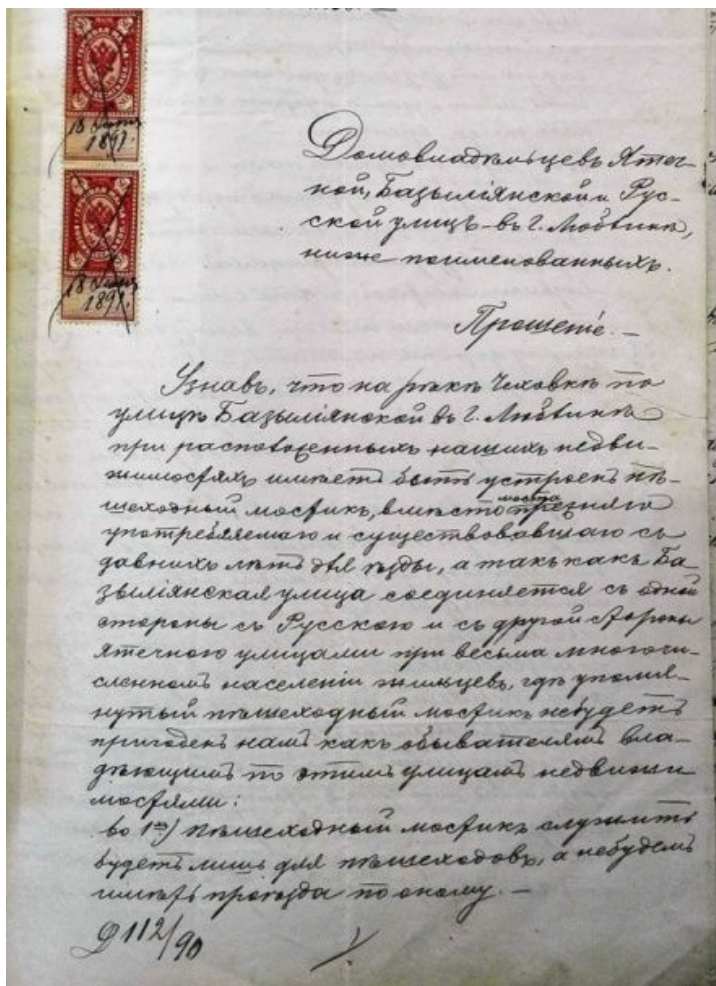 18
1891.
18
1891.
Домовладѣльцевъ Ятеч-
ной, Базыліянской и Рус-
ской улицъ – въ г. Люблинѣ,
ниже поименованныхъ.
Прошеніе. –
Узнавъ, что на рѣкѣ Чеховкѣ по
улицѣ Базыліянской въ г. Люблинѣ
при расположенныхъ нашихъ недви-
жимостяхъ имѣетъ быть устроенъ пѣ-
шеходный мостикъ, вмѣсто прежняго
моста
употребляемаго и существовавшаго съ
давнихъ лѣтъ для ѣзды, а такъ какъ Ба-
зыліянская улица соединяется съ одной
стороны съ Русскою и съ другой стороны
Ятечною улицами при весьма многочи-
сленномъ населеніи жильцевъ, гдѣ упомя-
нутый пѣшеходный мостикъ небудетъ
пригоденъ намъ какъ обывателямъ вла-
дѣющимъ по этимъ улицамъ недвижи
мостями:
во 1хъ) пѣшеходный мостикъ служить
будетъ лишь для пѣшеходовъ, а небудемъ
имѣть проѣзда по оному. –
112/90